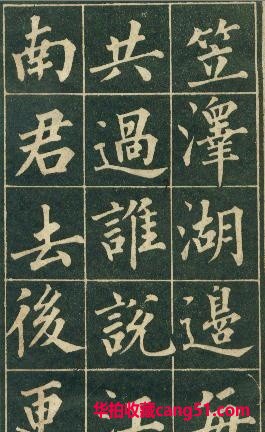 笠澤湖邊
共過誰說江
南君去後更
华拍收藏cang51.com